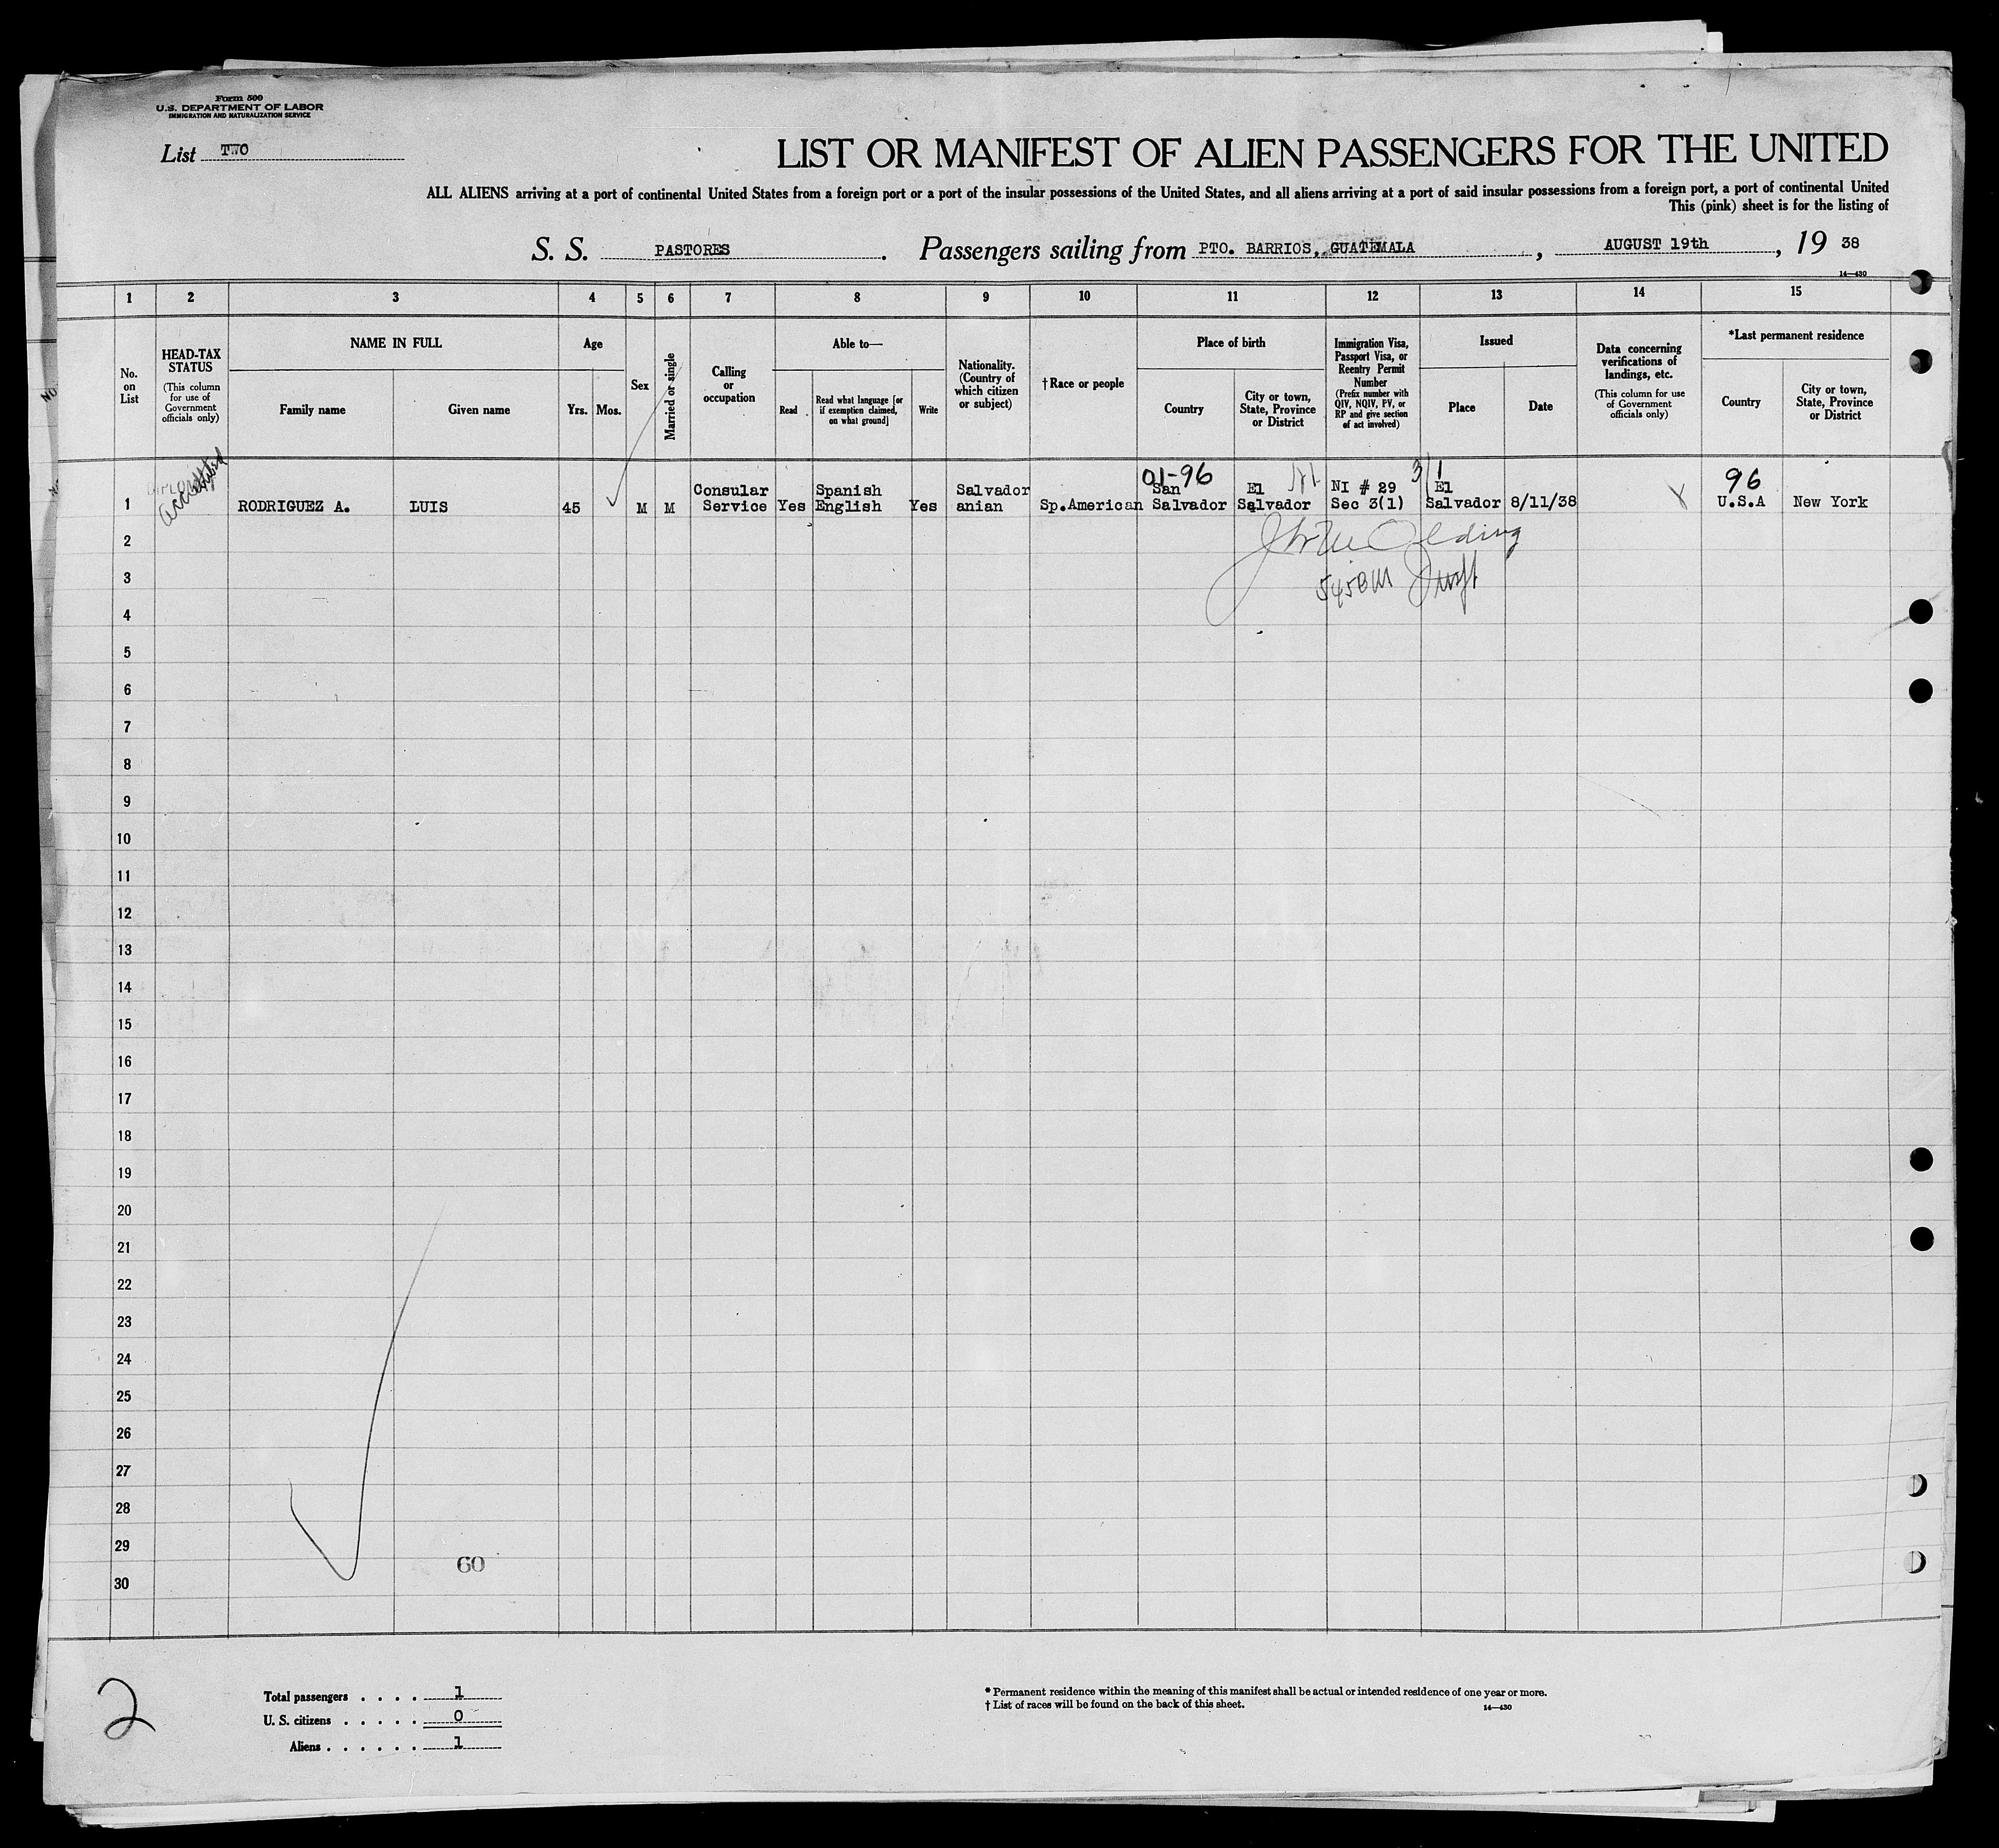 Form 500
U.S. DEPARTMENT OF LABOR
IMMIGRATION AND NATURALIZATION SERVICE
List TWO
LIST OR MANIFEST OF ALIEN PASSENGERS FOR THE UNITED
ALL ALIENS arriving at a port of continental United States from a foreign port or a port of the insular possessions of the United States, and all aliens arriving at a port of said insular possessions from a foreign port, a port of continental United
This (pink) sheet is for the listing of
S. S. PASTORES. Passengers sailing from PTO. BARRIOS, GUATEMALA, AUGUST 19th, 19 38
14—430
1 2 3 4 5 6 7 8 9 10 11 12 13 14 15
No. on List
HEAD-TAX STATUS
(This column for use of Government officials only)
NAME IN FULL
Family name
Given name
Age
Yrs. Mos.
Sex
Married or single
Calling or occupation
Able to—
Read
Read what language [or if exemption claimed, on what ground]
Write
Nationality. (Country of which citizen or subject)
†Race or people
Place of birth
Country
City or town, State, Province or District
Immigration Visa, Passport Visa, or Reentry Permit Number
(Prefix number with QIV, NQIV, PV, or RP and give section of act involved)
Issued
Place
Date
Data concerning verifications of landings, etc.
(This column for use of Government officials only)
*Last permanent residence
Country
City or town, State, Province or District
01-96
96
1 RODRIGUEZ A. LUIS 45 M M Consular Service Yes Spanish English Yes Salvador anian Sp.American San Salvador El Salvador NI # 29 Sec 3(1) El Salvador 8/11/38 U.S.A New York
2
3
4
5
6
7
8
9
10
11
12
13
14
15
16
17
18
19
20
21
22
23
24
25
26
27
28
29
30
60
2
Total passengers . . . . 1
U. S. citizens . . . . . 0
Aliens . . . . . . 1
* Permanent residence within the meaning of this manifest shall be actual or intended residence of one year or more.
† List of races will be found on the back of this sheet.
14—430